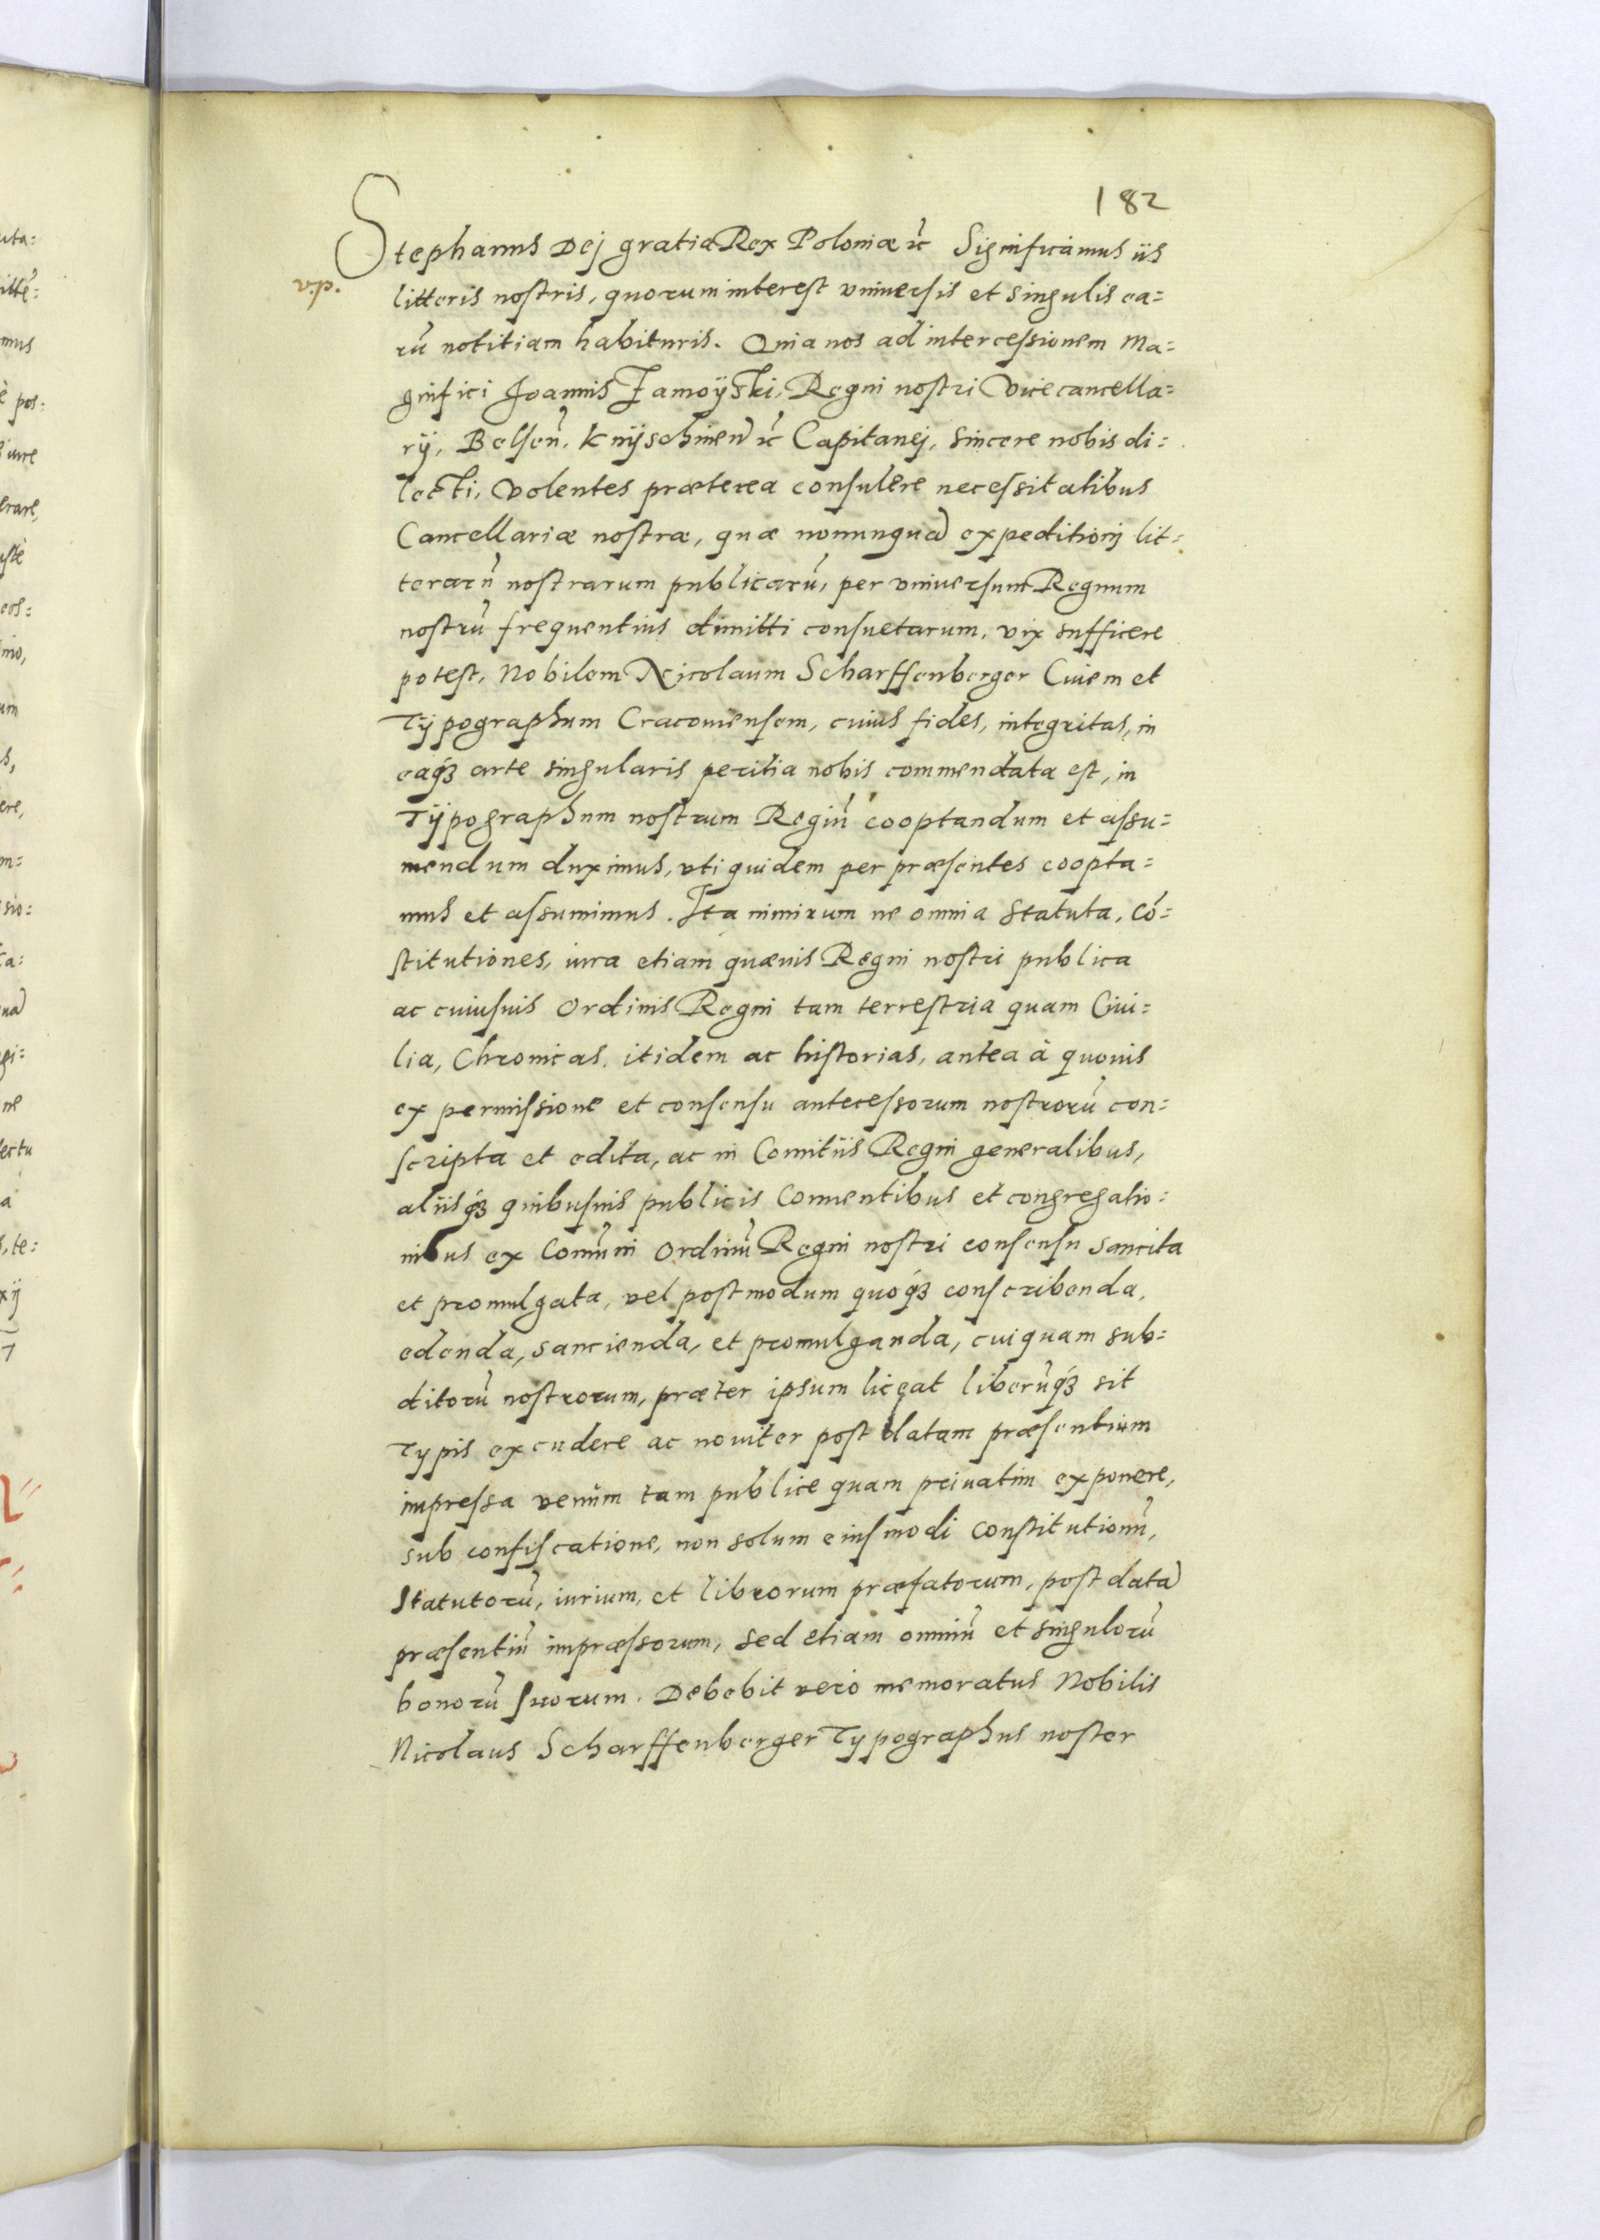 182
Stephanus Dej gratia Rex Poloniæ ꝛc̃ Significamus iis
v.p.
litteris nostris, quorum interest vniuersis et singulis ea=
rũ notitiam habituris. Quia nos ad intercessionem Ma=
gnifici Joannis Zamoÿski, Regni nostri Vicecancella=
rÿ, Belseñ. Knÿschineñ ꝛc̃ Capitanej, sincere nobis di=
lecti, Volentes præterea consulere necessitatibus
Cancellariæ nostræ, quæ nonnunquã expeditionj lit=
terarũ nostrarum publicarũ, per vniuersum Regnum
nostrũ frequentius dimitti consuetarum, vix sufficere
potest, Nobilem Nicolaum Scharffenberger Ciuem et
Tÿpographum Cracouiensem, cuius fides, integritas, in
eaq́ꝫ arte singularis peritia nobis commendata est, in
Tÿpographum nostrum Regiũ cooptandum et assu=
mendum duximus, vti quidem per præsentes coopta=
mus et assumimus. Ita nimirum ne omnia Statuta, Cõ=
stitutiones, iura etiam quæuis Regni nostri publica
ac cuiusuis Ordinis Regni tam terrestria quam Ciui=
lia, Chronicas, itidem ac historias, antea à quouis
ex permissione et consensu antecessorum nostrorũ con=
scripta et edita, ac in Comitiis Regni generalibus,
aliisq́ꝫ quibusuis publicis Conuentibus et congregatio=
nibus ex Comũni Ordinũ Regni nostri consensu sancita
et promulgata, vel postmodum quoq́ꝫ conscribenda,
edenda, sancienda, et promulganda, cuiquam sub=
ditorũ nostrorum, præter ipsum liceat liberũq́ꝫ sit
Typis excudere ac nouiter post datam præsentium
impressa venùm tam publice quam priuatim exponere,
sub confiscatione, non solum eiusmodi Constitutionũ,
Statutorũ, iurium, et librorum præfatorum, post datã
præsentiũ impræssorum, sed etiam omniũ et singulorũ
bonorũ suorum. Debebit vero memoratus Nobilis
Nicolaus Scharffenberger Typographus noster